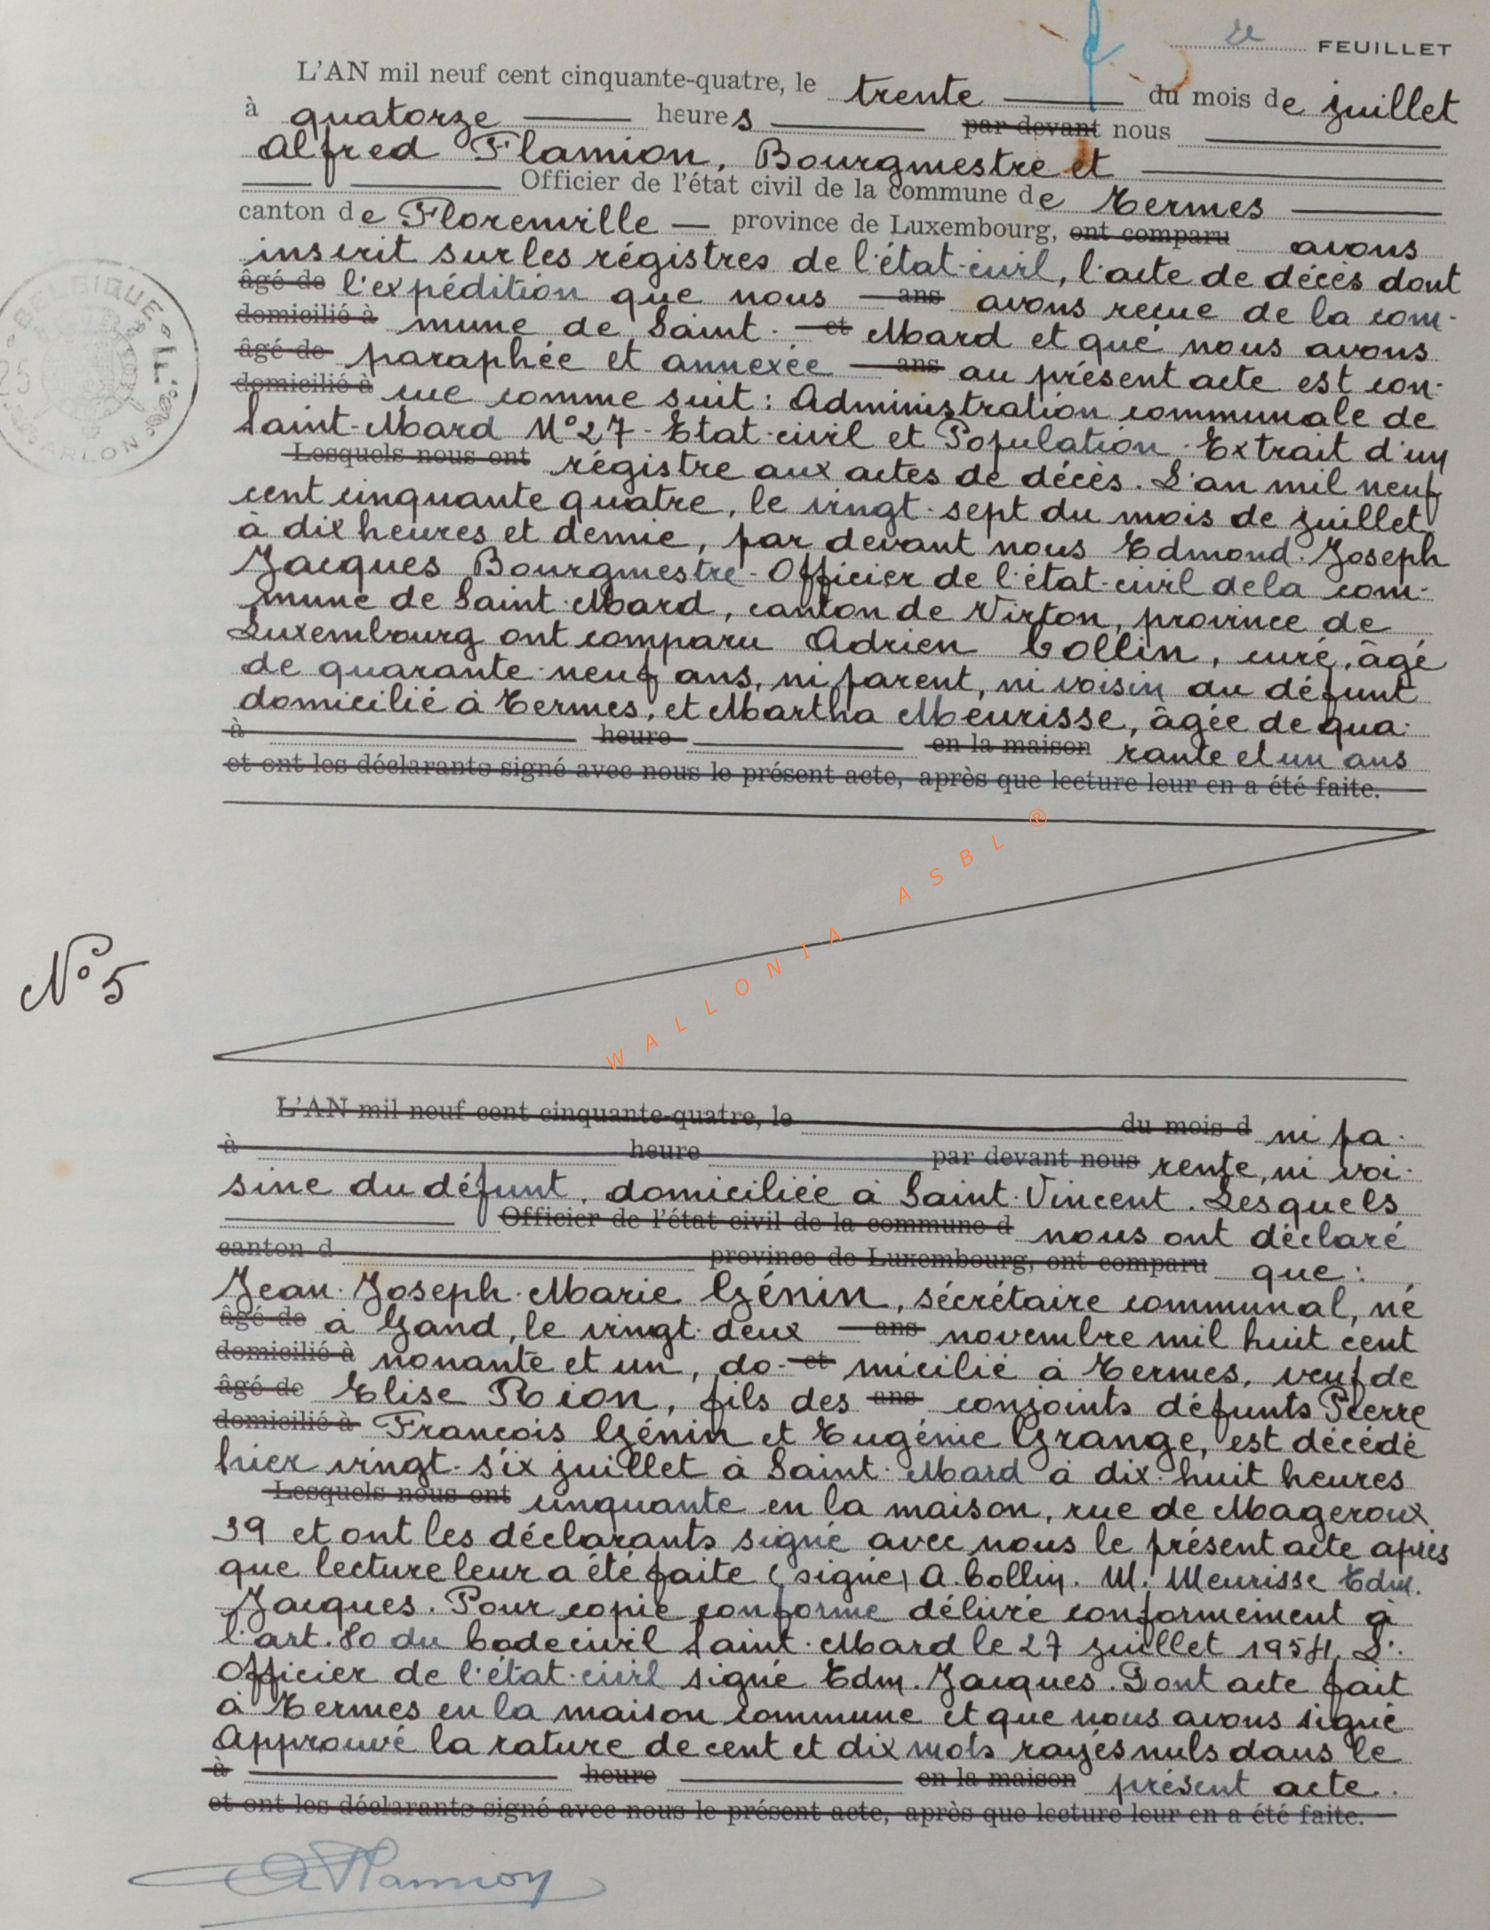 2e FEUILLET
L'AN mil neuf cent cinquante-quatre, le trente du mois de juillet
à quatorze heures par devant nous
Alfred Flamion, Bourgmestre et
Officier de l'état civil de la commune de Termes
canton de Florenville — province de Luxembourg, ont comparu avons
inscrit sur les régistres de l'état-civil, l'acte de décès dont
âgé de l'expédition que nous ans avons reçue de la com-
domicilié à mune de Saint- et Mard et que nous avons
âgé de paraphée et annexée ans au présent acte est con-
domicilié à cue comme suit : Administration communale de
Saint-Mard N° 27 - Etat-civil et Population - Extrait d'un
Lesquels nous ont régistre aux actes de décès. L'an mil neuf
cent cinquante quatre, le vingt-sept du mois de juillet
à dix heures et demie, par devant nous Edmond-Joseph
Jacques Bourgmestre - Officier de l'état-civil de la com-
mune de Saint-Mard, canton de Virton, province de
Luxembourg ont comparu Adrien Collin, curé, âgé
de quarante-neuf ans, ni parent, ni voisin du défunt
domicilié à Termes, et Martha Meurisse, âgée de qua-
à heure en la maison rante et un ans
et ont les déclarants signé avec nous le présent acte, après que lecture leur en a été faite.
BELGIQUE
ARLON
WALLONIA ASBL ®
N° 5
L'AN mil neuf cent cinquante-quatre, le du mois d ni pa-
à heure par devant nous rente, ni voi-
sine du défunt, domiciliée à Saint-Vincent. Lesquels
Officier de l'état civil de la commune d nous ont déclaré
canton d province de Luxembourg, ont comparu que :
Jean-Joseph-Marie Génin, sécrétaire communal, né
âgé de à Gand, le vingt-deux ans novembre mil huit cent
domicilié à nonante et un, do- et micilié à Termes, veuf de
âgé de Elise Rion, fils des ans conjoints défunts Pierre
domicilié à François Génin et Eugénie Grange, est décédé
hier vingt-six juillet à Saint-Mard à dix-huit heures
Lesquels nous ont cinquante en la maison, rue de Mageroux
39 et ont les déclarants signé avec nous le présent acte après
que lecture leur a été faite (signé) A. Collin. M. Meurisse Edm.
Jacques. Pour copie conforme délivré conformément à
l'art. 80 du Code civil Saint-Mard le 27 juillet 1954. L'-
Officier de l'état-civil signé Edm. Jacques. Dont acte fait
à Termes en la maison commune et que nous avons signé
Approuvé la rature de cent et dix mots rayés nuls dans le
à heure en la maison présent acte.
et ont les déclarants signé avec nous le présent acte, après que lecture leur en a été faite.
A Flamion